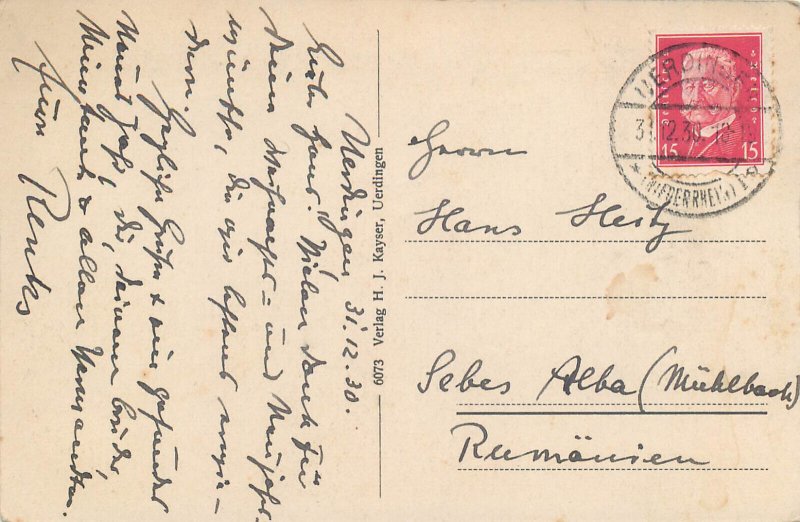 Uerdingen, 31.12.30.
Lieber Hans! Vielen Dank für
Deine Weihnachts- und Neujahrs-
wünsche, die wir bestens erwi-
dern.
Herzliche Grüße & ein gesundes
Neues Jahr, Dir, Deinem Bruder
& allen Verwandten.
Euer
6073 Verlag H. J. Kayser, Uerdingen
DEUTSCHES REICH
15 15
UERDINGEN
31.12.30
(NIEDERRHEIN)
Herrn
Hans Heitz
Sebes Alba (Mühlbach)
Rumänien